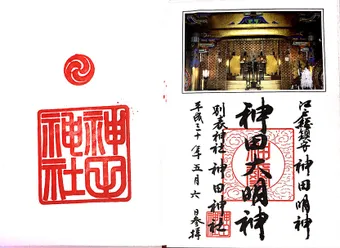 江戸総鎮守 神田明神
神田大明神
別表神社 神田神社
平成三十年五月六日参拝
神田
神社